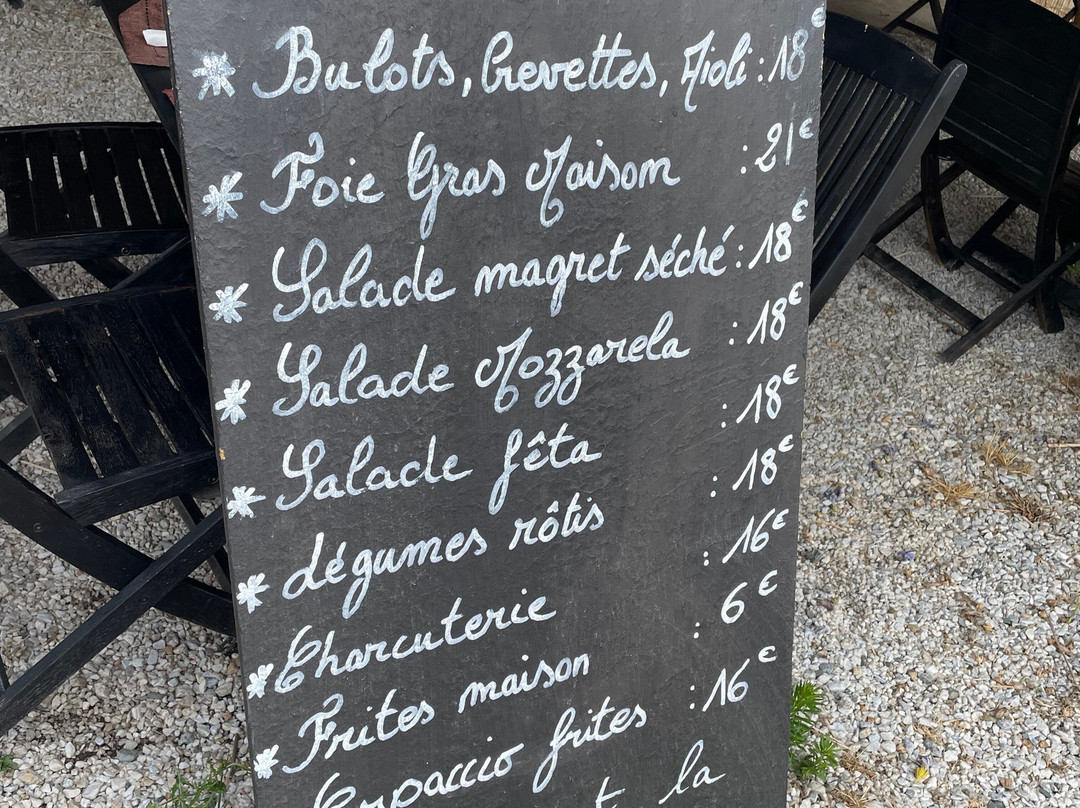 * Bulots, Crevettes, Aioli : 18€
* Foie Gras Maison : 21€
* Salade magret séché : 18€
* Salade Mozzarela : 18€
* Salade fêta : 18€
* légumes rôtis : 18€
* Charcuterie : 16€
* Frites maison : 6€
* Carpaccio frites : 16€
la